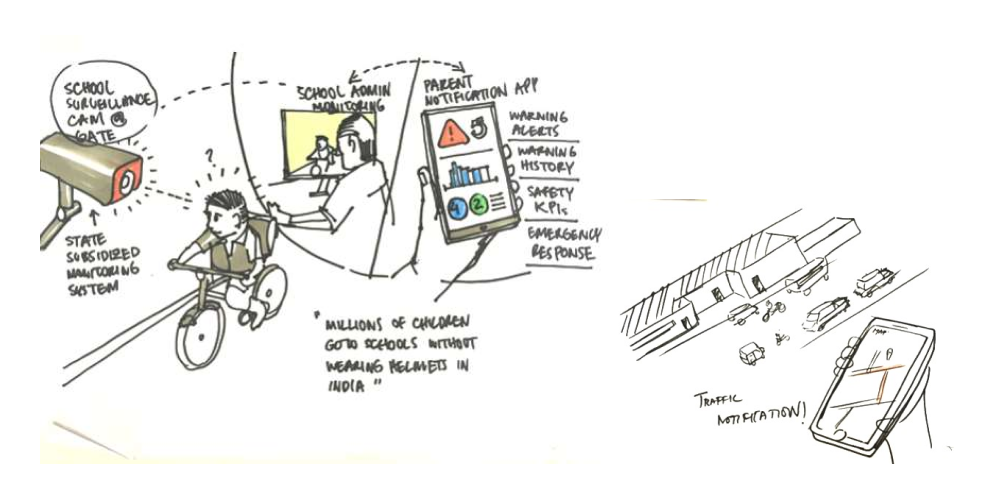 SCHOOL
SURVEILLANCE
CAM @
GATE
STATE
SUBSIDIZED
MONITORING
SYSTEM
?
SCHOOL ADMIN
MONITORING
PARENT
NOTIFICATION APP
5
4 2
WARNING
ALERTS
WARNING
HISTORY
SAFETY
KPIs
EMERGENCY
RESPONSE
"MILLIONS OF CHILDREN
GO TO SCHOOLS WITHOUT
WEARING HELMETS IN
INDIA"
TRAFFIC
NOTIFICATION!
MAP